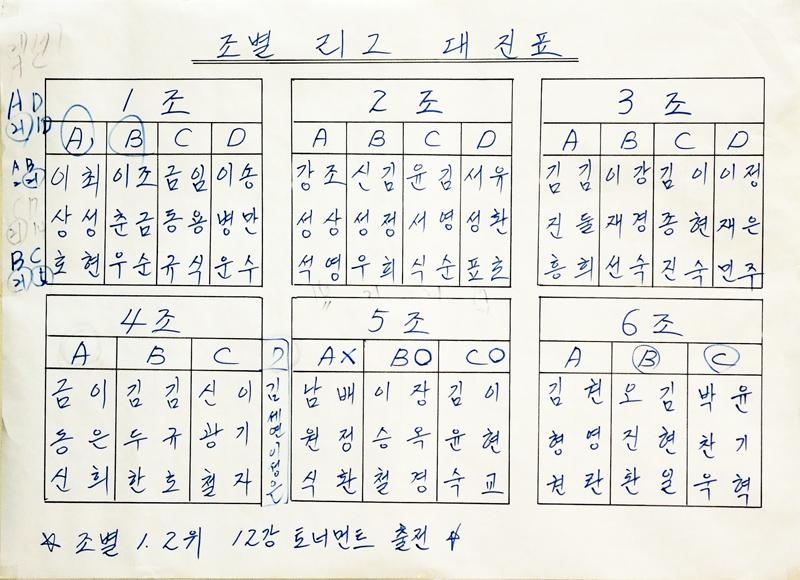 조별 리그 대진표
1조
A B C D
이 최 이 조 금 임 이 송
상 성 춘 금 동 용 병 만
호 현 우 순 규 식 운 수
2조
A B C D
강 조 신 김 윤 김 서 유
성 상 성 정 서 영 성 환
석 영 우 희 식 순 표 호
3조
A B C D
김 김 이 강 김 이 이 정
진 들 재 경 종 현 재 은
흥 희 선 숙 진 숙 민 주
4조
A B C
금 이 김 김 신 이
동 은 두 규 광 기
신 희 한 호 철 자
5조
AX BO CO
남 배 이 장 김 이
원 정 승 옥 윤 현
식 환 철 경 숙 교
6조
A B C
김 현 오 김 박 윤
형 영 진 현 찬 기
권 란 환 일 욱 혁
A D
A B
B C
☆ 조별 1. 2위 12강 토너먼트 출전 ☆